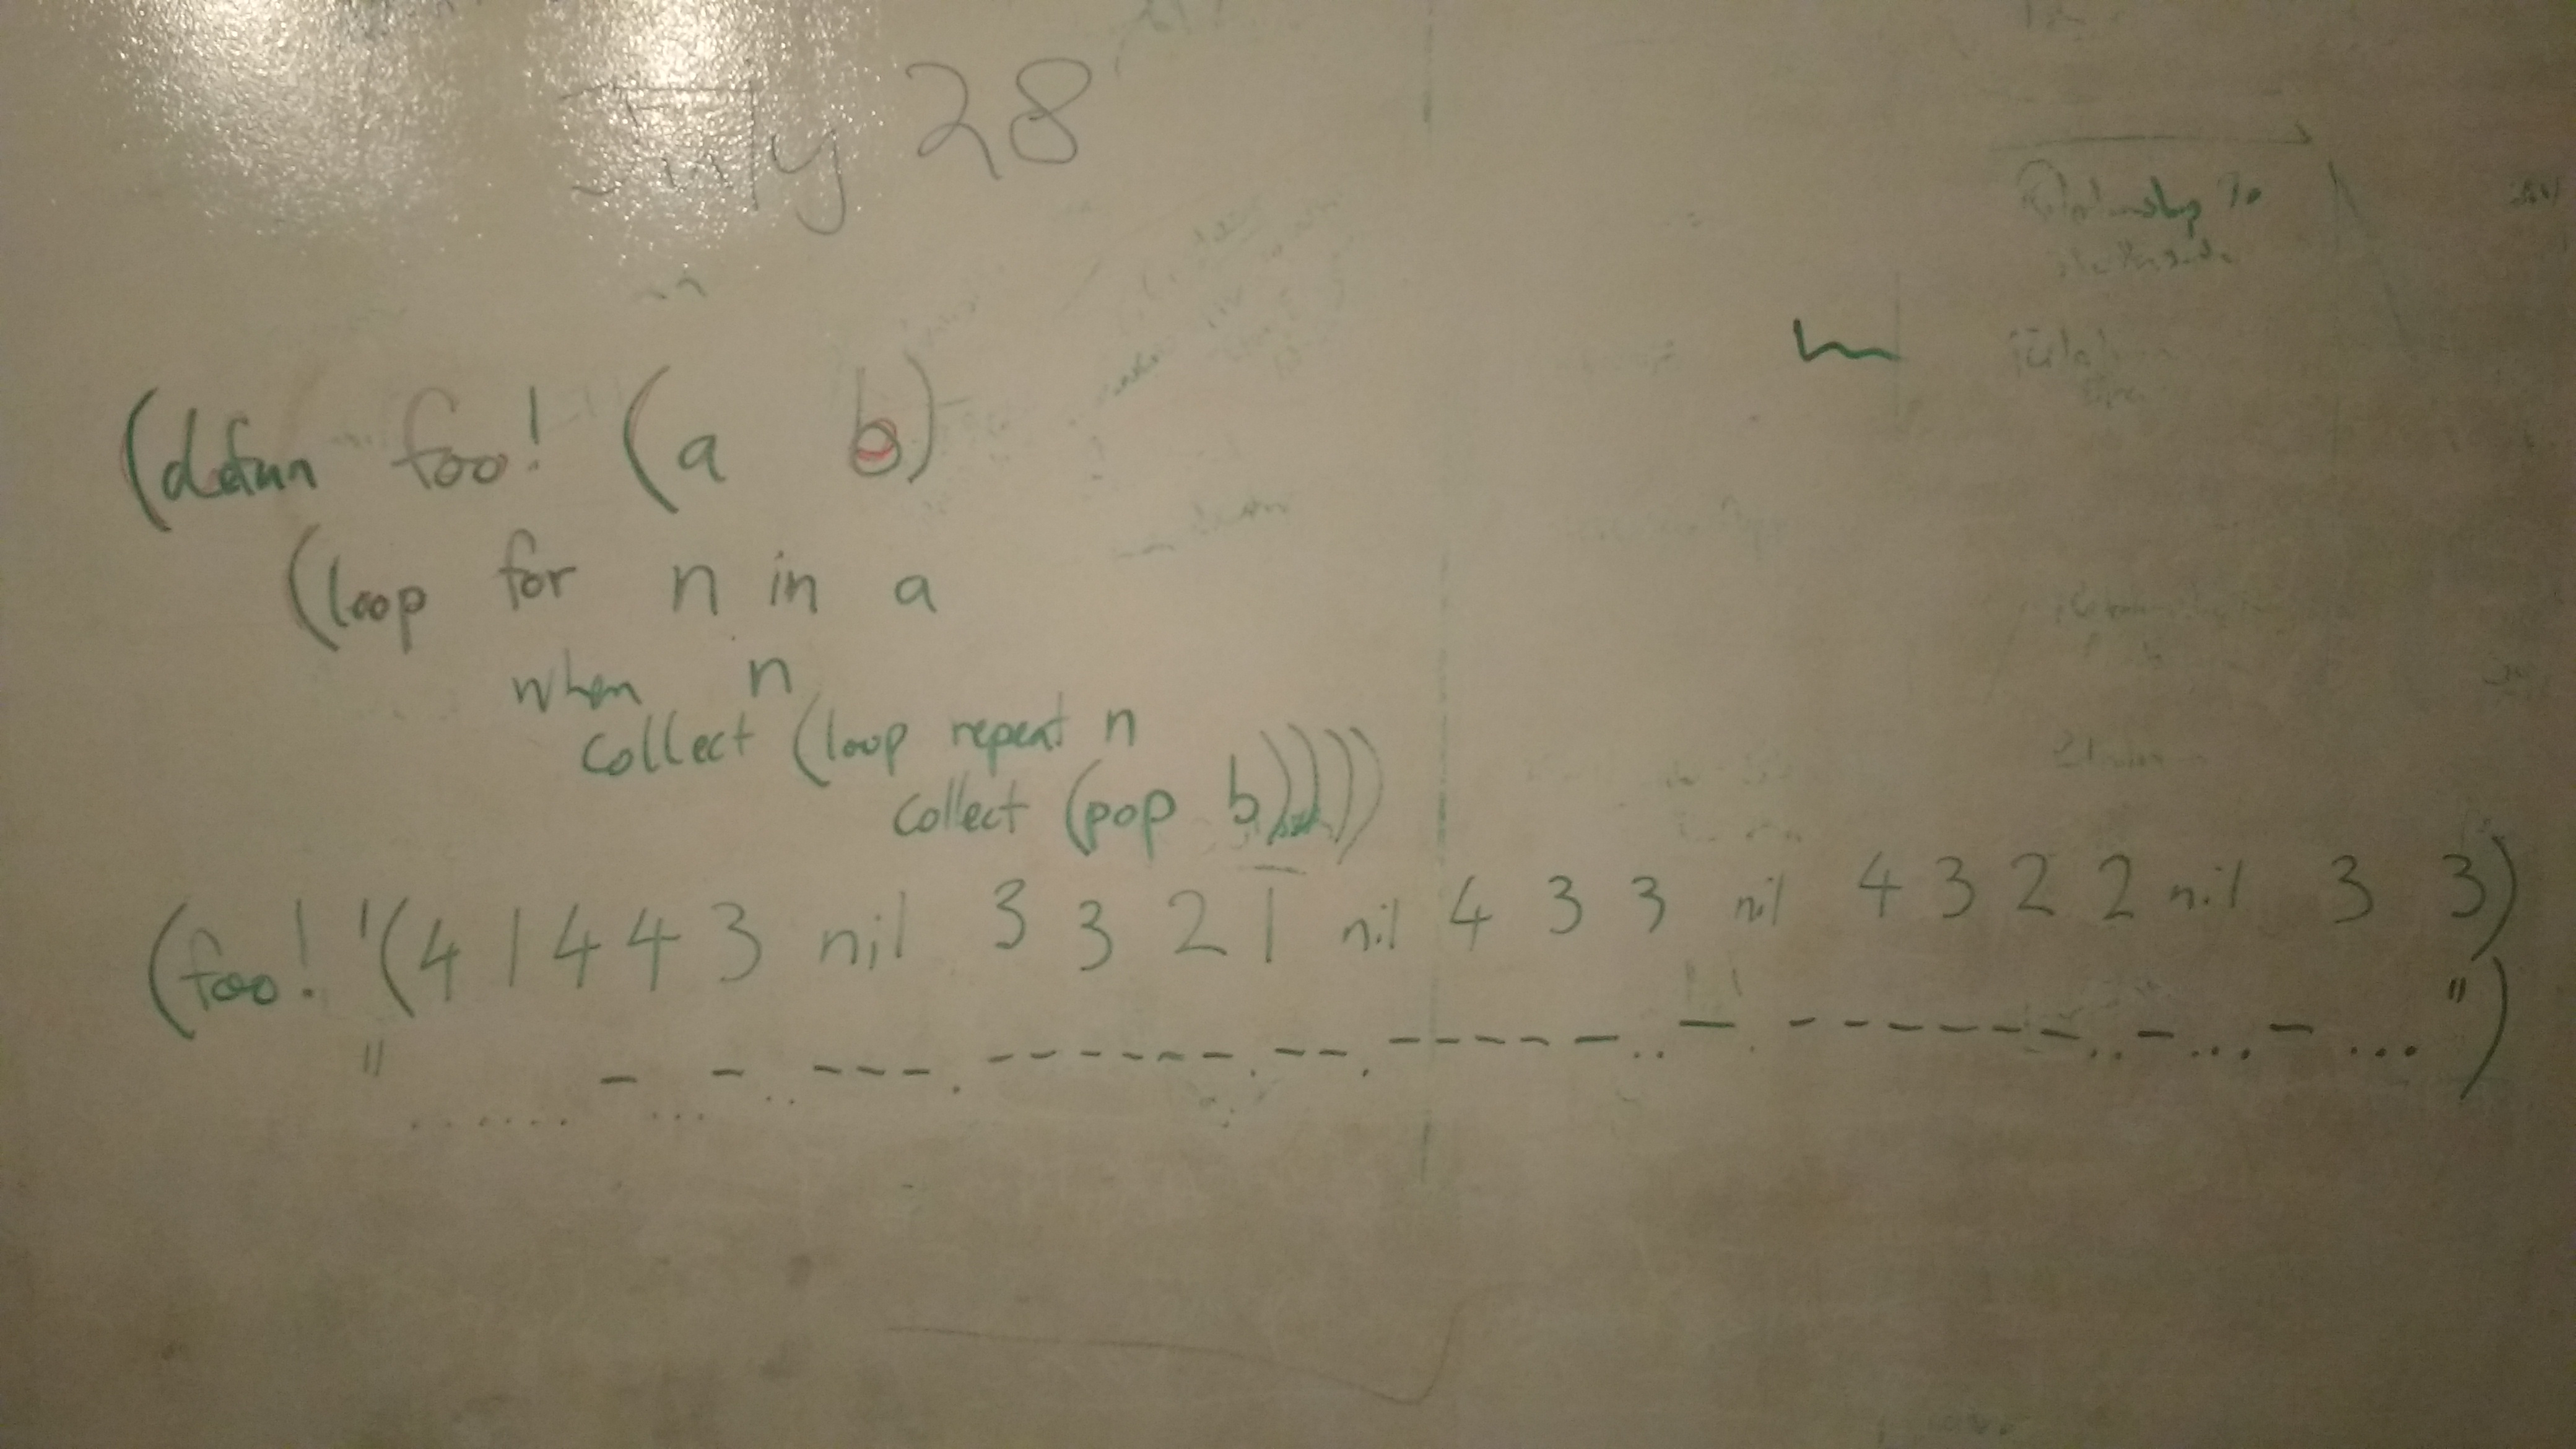 July 28
Relationship To
(defun foo! (a b)
(loop for n in a
when n
collect (loop repeat n
collect (pop b))))
(foo! '(4 1 4 4 3 nil 3 3 2 1 nil 4 3 3 nil 4 3 2 2 nil 3 3)
"......-...-..---.------.--.-----..-.------..-...-...")